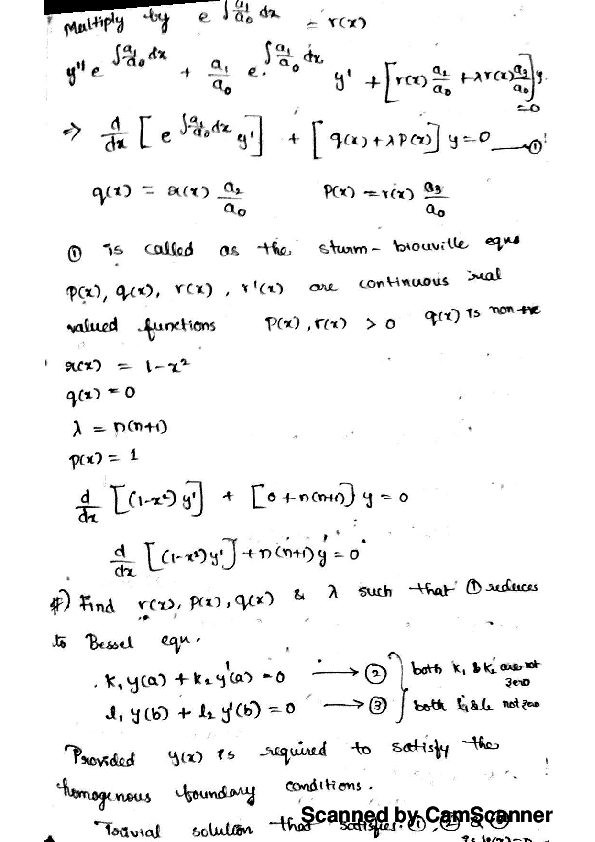 Multiply by e^{∫ a₁/a₀ dx} = r(x)
y'' e^{∫ a₁/a₀ dx} + a₁/a₀ e^{∫ a₁/a₀ dx} y' + [r(x) a₂/a₀ + λ r(x) a₃/a₀] y = 0
⇒ d/dx [e^{∫ a₁/a₀ dx} y'] + [q(x) + λ P(x)] y = 0 —①
q(x) = r(x) a₂/a₀   P(x) = r(x) a₃/a₀
① is called as the sturm-biouville equn
P(x), q(x), r(x), r'(x) are continuous real
valued functions P(x), r(x) > 0 q(x) is non +ve
r(x) = 1-x²
q(x) = 0
λ = n(n+1)
p(x) = 1
d/dx [(1-x²) y'] + [0 + n(n+1)] y = 0
d/dx [(1-x²) y'] + n(n+1) y = 0
#) Find r(x), P(x), q(x) & λ such that ① reduces
to Bessel equ.
k₁ y(a) + k₂ y'(a) = 0 → ② both k₁ & k₂ are not zero
l₁ y(b) + l₂ y'(b) = 0 → ③ both l₁ & l₂ not zero
Provided y(x) is required to satisfy the
homogenous boundary conditions.
Scanned by CamScanner
Trivial solution that satisfies ①, ② & ③